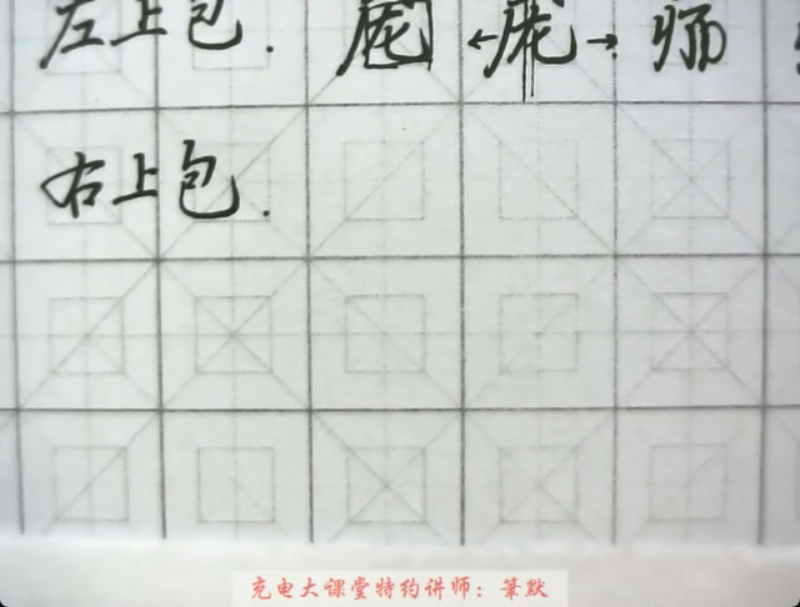 左上包. 庞 ←庞→ 师
右上包.
充电大课堂特约讲师：笔默